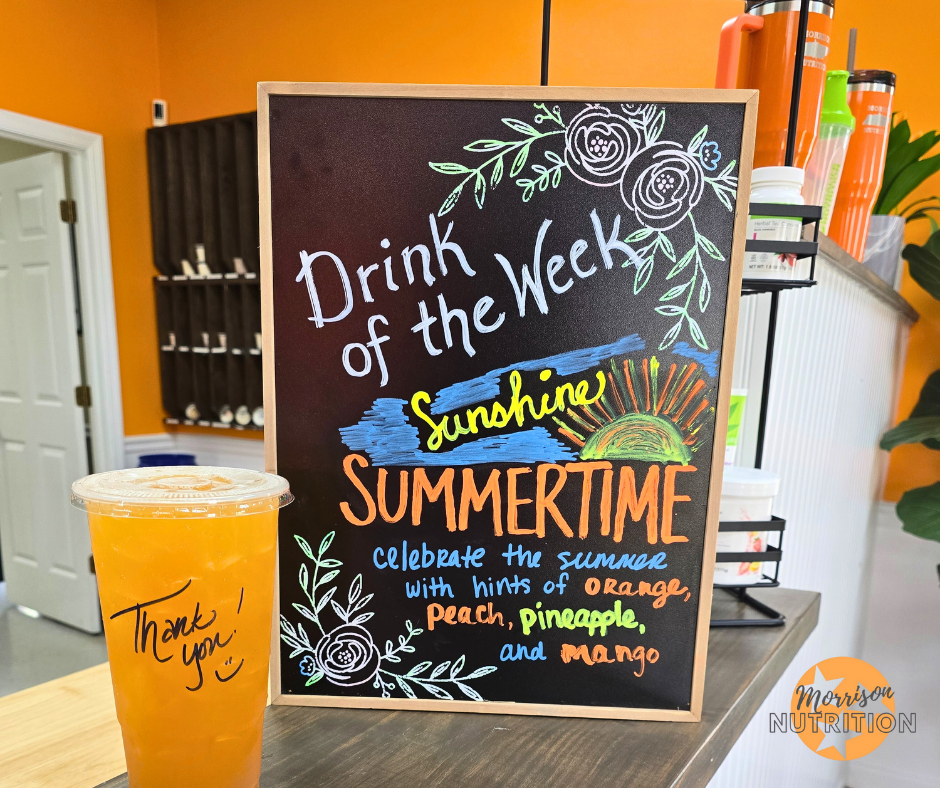 Drink
of the Week
Sunshine
SUMMERTIME
celebrate the summer
with hints of orange,
peach, pineapple,
and mango
Thank
you!
Morrison
NUTRITION